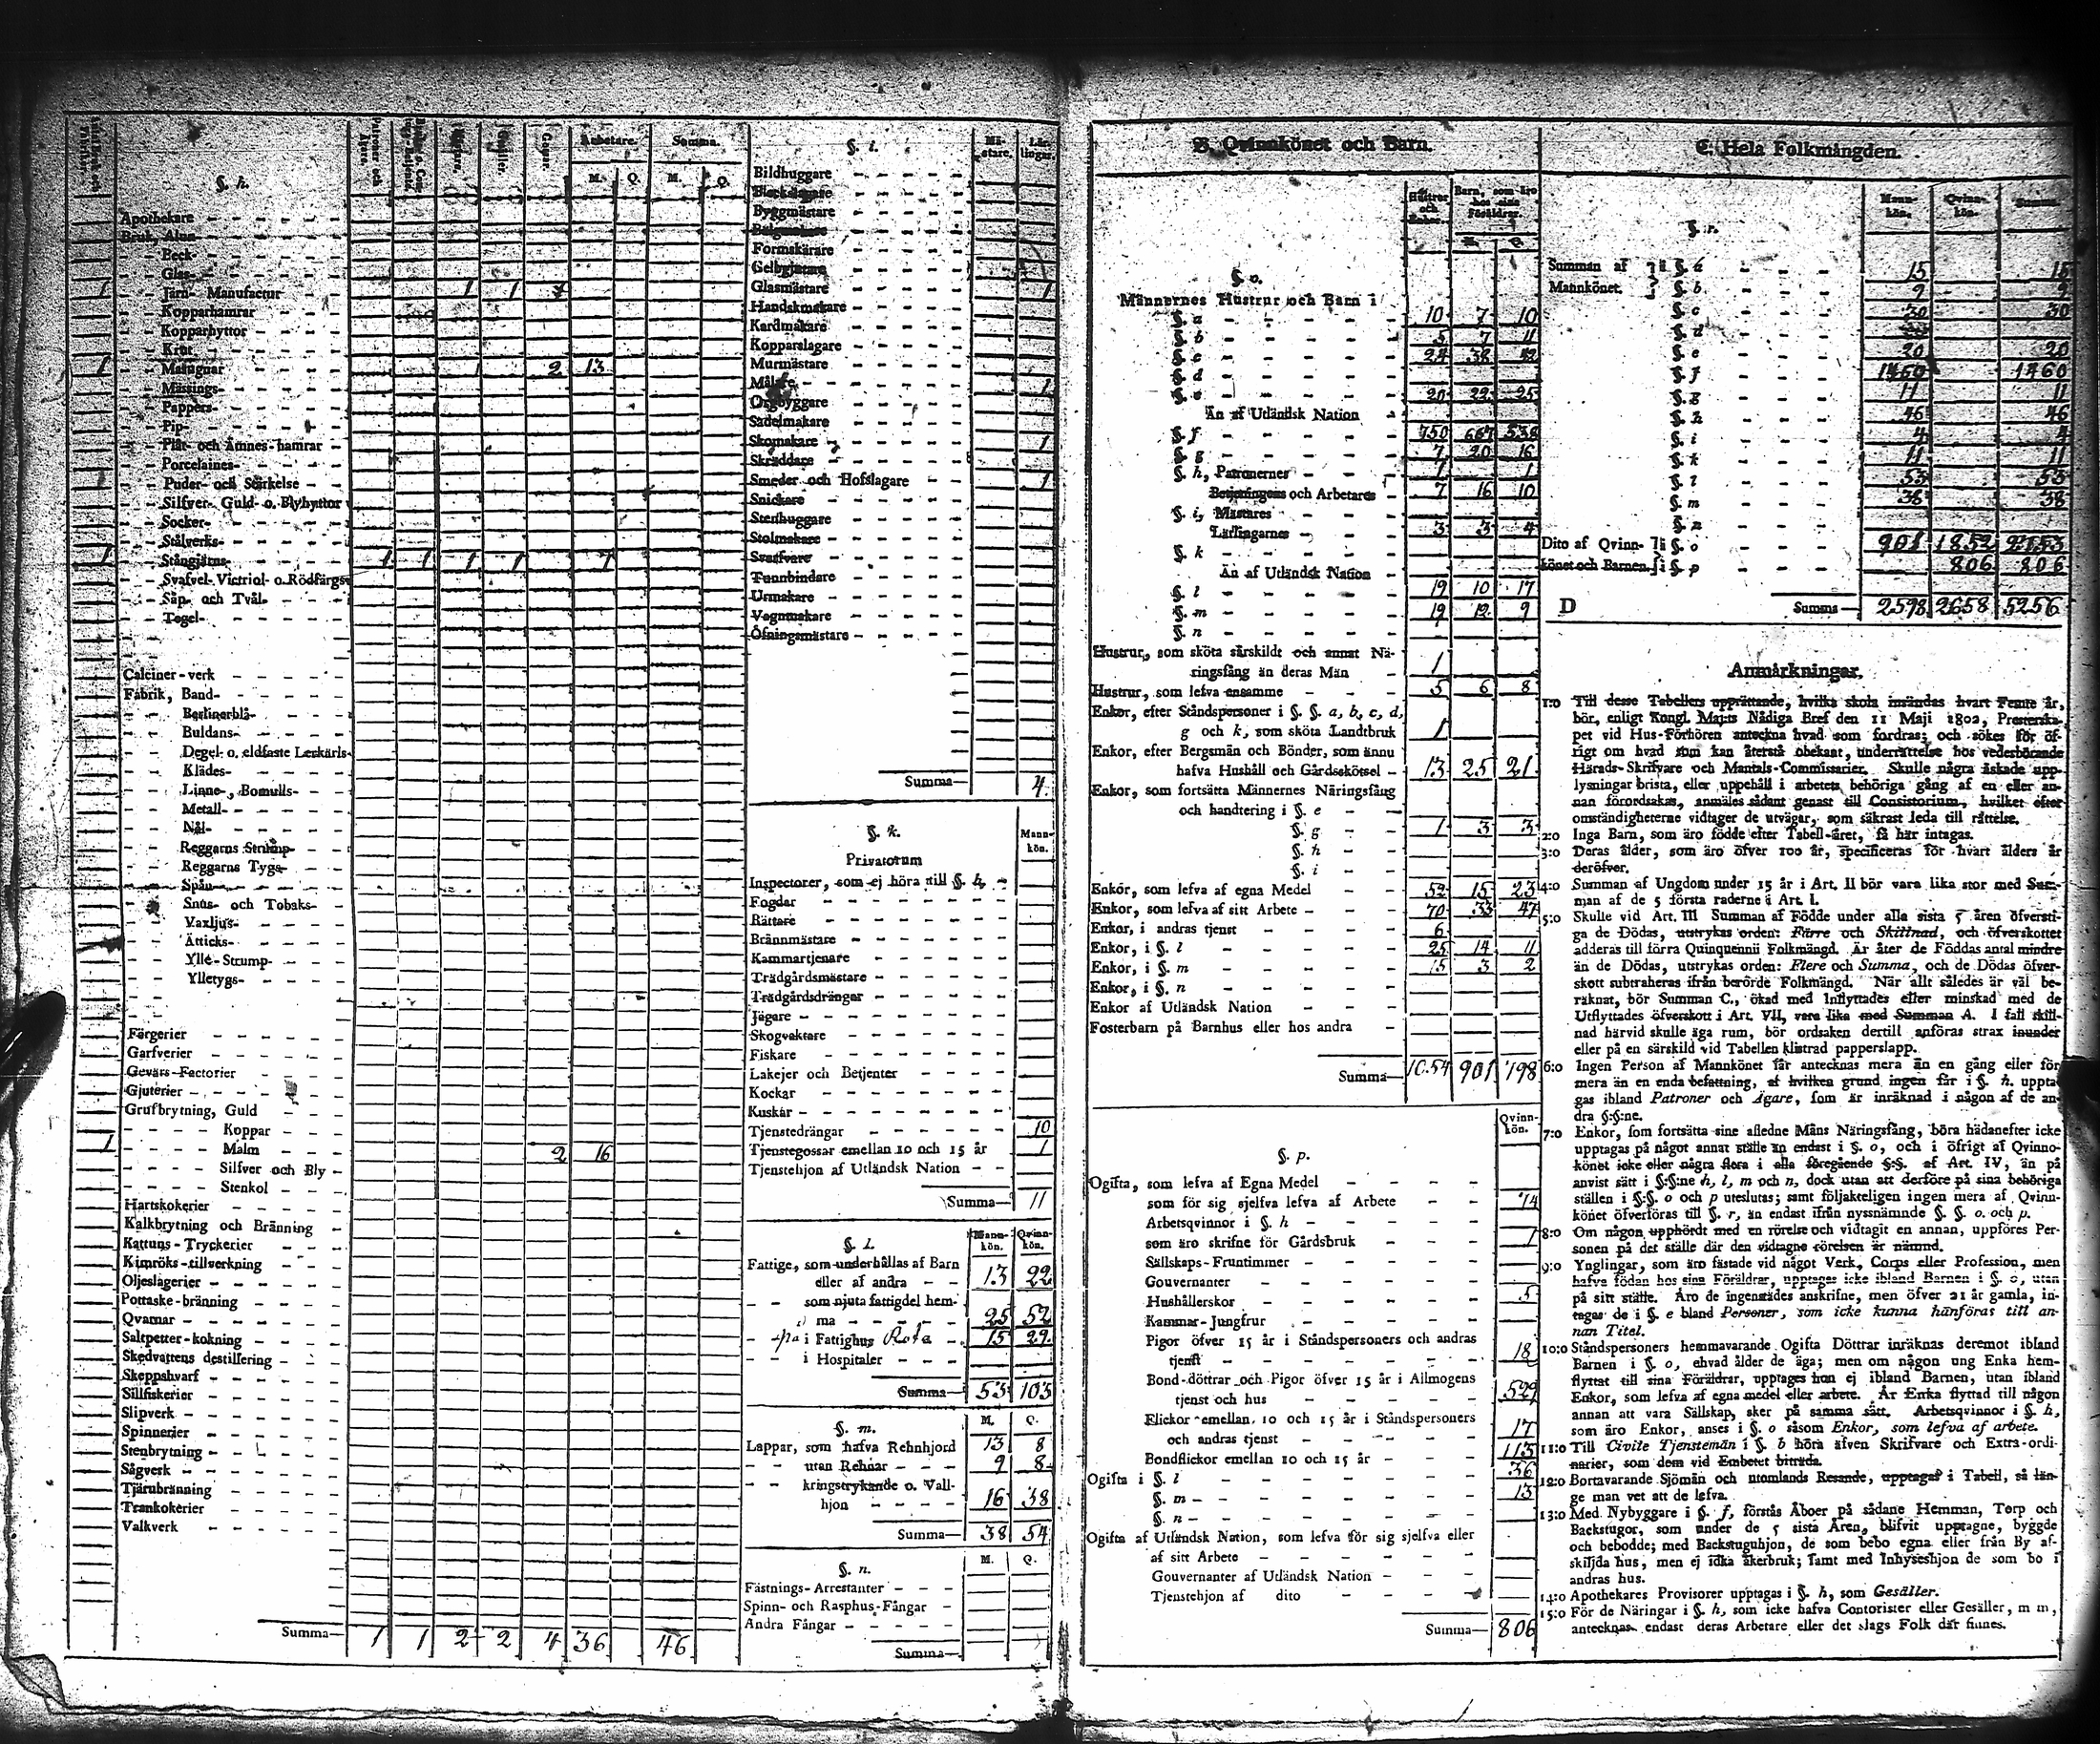 §. h.
Arbetare. Summa.
M. Q. M. Q.
Apothekare
Bruk, Alun-
Beck-
Glas-
1 Järn- Manufactur 1 1
Kopparhamrar
Kopparhyttor
Krut-
1 Masugnar 1 2 13
Mässings-
Pappers-
Pip-
Plåt- och Ämnes-hamrar
Porcelaines-
Puder- och Stärkelse
Silfver- Guld- o. Blyhyttor
Socker-
Stålverks-
1 Stångjärns- 1 1 1 1 7
Svafvel- Victriol- o. Rödfärgs-
Såp- och Tvål-
Tegel-
Calciner-verk
Fabrik, Band-
Berlinerblå-
Buldans-
Degel- o. eldfaste Lerkärls-
Klädes-
Linne-, Bomulls-
Metall-
Nål-
Reggarns Strump-
Reggarns Tygs-
Spån-
Snus- och Tobaks-
Vaxljus-
Ätticks-
Ylle-Strump-
Ylletygs-
Färgerier
Garfverier
Gevärs-Factorier
Gjuterier
Grufbrytning, Guld
Koppar
1 Malm 2 16
Silfver och Bly
Stenkol
Hartskokerier
Kalkbrytning och Bränning
Kattuns-Tryckerier
Kimröks-tillverkning
Oljeslagerier
Pottaske-bränning
Qvarnar
Saltpetter-kokning
Skedvattens destillering
Skeppshvarf
Sillfiskerier
Slipverk
Spinnerier
Stenbrytning
Sågverk
Tjärubränning
Trankokerier
Valkverk
Summa 1 1 2 2 4 36 46
§. i.
Mästare. Lärlingar.
Bildhuggare
Bleckslagare
Byggmästare
Bälgmakare
Formskärare
Gelbgjutare
Glasmästare 1
Handskmakare
Kardmakare
Kopparslagare
Murmästare
Målare 1
Orgbyggare
Sadelmakare
Skomakare 1
Skräddare
Smeder och Hofslagare 1
Snickare
Stenhuggare
Stolmakare
Svarfvare
Tunnbindare
Urmakare
Vagnmakare
Öfningsmästare
Summa 4.
§. k.
Mannkön.
Privatorum
Inspectorer, som ej höra till §. h.
Fogdar
Rättare
Brännmästare
Kammartjenare
Trädgårdsmästare
Trädgårdsdrängar
Jägare
Skogvaktare
Fiskare
Lakejer och Betjenter
Kockar
Kuskar
Tjenstedrängar 10
Tjenstegossar emellan 10 och 15 år 1
Tjenstehjon af Utländsk Nation
Summa 11
§. l.
Mannkön. Qvinnkön.
Fattige, som underhållas af Barn
eller af andra 13 22
som njuta fattigdel hem-
ma 25 52
på i Fattighus Rota 15 29
i Hospitaler
Summa 53 103
§. m.
M. Q.
Lappar, som hafva Rehnhjord 13 8
utan Rehnar 9 8
kringstrykande o. Vall-
hjon 16 38
Summa 38 54
§. n.
M. Q.
Fästnings-Arrestanter
Spinn- och Rasphus-Fångar
Andra Fångar
Summa
B. Qvinnkönet och Barn.
Hustrur och Enkor. Barn, som äro hos sina Föräldrar.
M. Q.
§. o.
Männernes Hustrur och Barn i
§. a 10 7 10
§. b 5 7 11
§. c 24 38 42
§. d
§. e 20 22 25
Än af Utländsk Nation
§. f 750 667 538
§. g 7 20 16
§. h, Patronernes 1 1
Betjeningens och Arbetares 7 16 10
§. i, Mästares
Lärlingarnes 3 3 4
§. k
Än af Utländsk Nation
§. l 19 10 17
§. m 19 12 9
§. n
Hustrur, som sköta särskildt och annat Nä-
ringsfång än deras Män 1
Hustrur, som lefva ensamme 5 6 8
Enkor, efter Ståndspersoner i §. §. a, b, c, d,
g och k, som sköta Landtbruk 1
Enkor, efter Bergsmän och Bönder, som ännu
hafva Hushåll och Gårdsskötsel 13 25 21
Enkor, som fortsätta Männernes Näringsfång
och handtering i §. e
§. g 1 3 3
§. h
§. i
Enkor, som lefva af egna Medel 52 15 23
Enkor, som lefva af sitt Arbete 70 33 47
Enkor, i andras tjenst 6
Enkor, i §. l 25 14 11
Enkor, i §. m 15 3 2
Enkor, i §. n
Enkor af Utländsk Nation
Fosterbarn på Barnhus eller hos andra
Summa 1054 901 798
Qvinnkön.
§. p.
Ogifta, som lefva af Egna Medel
som för sig sjelfva lefva af Arbete 74
Arbetsqvinnor i §. h
som äro skrifne för Gårdsbruk 1
Sällskaps-Fruntimmer
Gouvernanter
Hushållerskor 5
Kammar-Jungfrur
Pigor öfver 15 år i Ståndspersoners och andras
tjenst 18
Bond-döttrar och Pigor öfver 15 år i Allmogens
tjenst och hus 529
Flickor emellan 10 och 15 år i Ståndspersoners
och andras tjenst 17
Bondflickor emellan 10 och 15 år 113
Ogifta i §. l 36
§. m 13
§. n
Ogifta af Utländsk Nation, som lefva för sig sjelfva eller
af sitt Arbete
Gouvernanter af Utländsk Nation
Tjenstehjon af dito
Summa 806
C. Hela Folkmängden.
Mannkön. Qvinnkön. Summa.
§. r.
Summan af i §. a 15 15
Mannkönet. §. b 9 9
§. c 30 30
§. d
§. e 20 20
§. f 1460 1460
§. g 11 11
§. h 46 46
§. i 4 4
§. k 11 11
§. l 53 53
§. m 38 38
§. n
Dito af Qvinn- i §. o 901 1852 2753
könet och Barnen. i §. p 806 806
D Summa 2598 2658 5256
Anmärkningar.
1:o Till desse Tabellers upprättande, hvilka skola insändas hvart Femte år,
bör, enligt Kongl. Maj:ts Nådiga Bref den 11 Maji 1802, Presterska-
pet vid Hus-Förhören anteckna hvad som fordras; och sökes för öf-
rigt om hvad som kan återstå obekant, underrättelse hos vederbörande
Härads-Skrifvare och Mantals-Commissarier. Skulle några äskade upp-
lysningar brista, eller uppehåll i arbetets behöriga gång af en eller an-
nan förordsakas, anmäles sådant genast till Consistorium, hvilket efter
omständigheterne vidtager de utvägar, som säkrast leda till rättelse.
2:o Inga Barn, som äro födde efter Tabell-året, få här intagas.
3:o Deras ålder, som äro öfver 100 år, specificeras för hvart ålders år
deröfver.
4:o Summan af Ungdom under 15 år i Art. II bör vara lika stor med Sum-
man af de 5 första raderne i Art. I.
5:o Skulle vid Art. III Summan af Födde under alla sista 5 åren öfversti-
ga de Dödas, utstrykas orden: Färre och Skillnad, och öfverskottet
adderas till förra Quinquennii Folkmängd. Är åter de Föddas antal mindre
än de Dödas, utstrykas orden: Flere och Summa, och de Dödas öfver-
skott subtraheras ifrån berörde Folkmängd. När allt således är väl be-
räknat, bör Summan C., ökad med Inflyttades eller minskad med de
Utflyttades öfverskott i Art. VII, vara lika med Summan A. I fall skill-
nad härvid skulle äga rum, bör ordsaken dertill anföras strax inunder
eller på en särskild vid Tabellen klistrad papperslapp.
6:o Ingen Person af Mannkönet får antecknas mera än en gång eller för
mera än en enda befattning, af hvilken grund ingen får i §. h. uppta-
gas ibland Patroner och Ägare, som är inräknad i någon af de an-
dra §:§:ne.
7:o Enkor, som fortsätta sine afledne Mäns Näringsfång, böra hädanefter icke
upptagas på något annat ställe än endast i §. o, och i öfrigt af Qvinno-
könet icke eller några flera i alla föregående §:§. af Art. IV, än på
anvist sätt i §:§:ne h, l, m och n, dock utan att derföre på sina behöriga
ställen i §:§. o och p uteslutas; samt följakteligen ingen mera af Qvinn-
könet öfverföras till §. r, än endast ifrån nyssnämnde §. §. o. och p.
8:o Om någon upphördt med en rörelse och vidtagit en annan, uppföres Per-
sonen på det ställe där den vidtagne rörelsen är nämnd.
9:o Ynglingar, som äro fästade vid något Verk, Corps eller Profession, men
hafva födan hos sina Föräldrar, upptages icke ibland Barnen i §. o, utan
på sitt ställe. Äro de ingenstädes anskrifne, men öfver 21 år gamla, in-
tagas de i §. e bland Personer, som icke kunna hänföras till an-
nan Titel.
10:o Ståndspersoners hemmavarande Ogifta Döttrar inräknas deremot ibland
Barnen i §. o, ehvad ålder de äga; men om någon ung Enka hem-
flyttat till sina Föräldrar, upptages hon ej ibland Barnen, utan ibland
Enkor, som lefva af egna medel eller arbete. Är Enka flyttad till någon
annan att vara Sällskap, sker på samma sätt. Arbetsqvinnor i §. h,
som äro Enkor, anses i §. o såsom Enkor, som lefva af arbete.
11:o Till Civile Tjenstemän i §. b höra äfven Skrifvare och Extra-ordi-
narier, som dem vid Embetet biträda.
12:o Bortavarande Sjömän och utomlands Resande, upptages i Tabell, så län-
ge man vet att de lefva.
13:o Med Nybyggare i §. f, förstås Åboer på sådane Hemman, Torp och
Backstugor, som under de 5 sista Åren, blifvit upptagne, byggde
och bebodde; med Backstuguhjon, de som bebo egna eller från By af-
skiljda hus, men ej idka åkerbruk; samt med Inhyseshjon de som bo i
andras hus.
14:o Apothekares Provisorer upptagas i §. h, som Gesäller.
15:o För de Näringar i §. h, som icke hafva Contorister eller Gesäller, m m,
antecknas endast deras Arbetare eller det slags Folk där finnes.